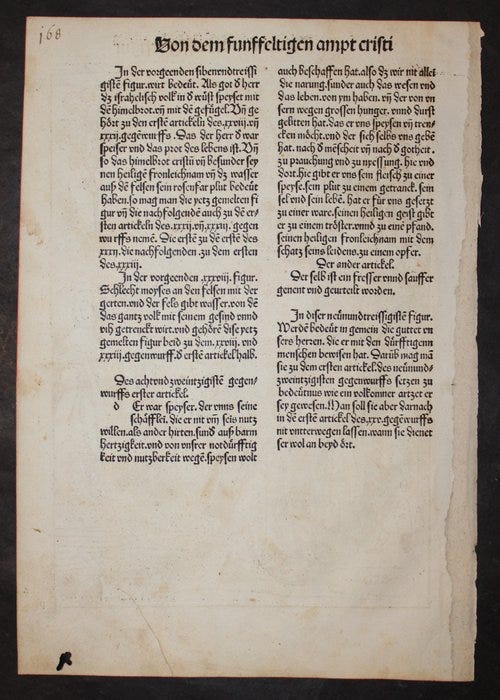 168
Von dem funffeltigen ampt cristi
In der vorgeenden sibenvndtreissi
gistē figur. wirt bedeut. Als got d herr
dz israhelisch volk in d wüst speyset mit
dē himelbrot. vñ mit dē gefügel. Vñ ge
hört zu den erstē artickeln des. xxviij. vñ
xxxij. gegēwurffs. Das der herr d war
speiser vnd das prot des lebens ist. Vñ
so das himelbrot cristū vñ besunder sey
nen heiligē fronleichnam vñ dz wasser
auß dē felsen sein rosenfar plut bedeut
haben. so mag man die yetz gemelten fi
gur vñ die nachfolgendē auch zu dē er/
sten artickeln des. xxxij. vñ. xxxiij. gegen
wurffs nemē. Die erstē zu dē erstē des
xxxij. die nachfolgenden zu dem ersten
des. xxxiij.
In der vorgeenden. xxxviij. figur.
Schlecht moyses an den felsen mit der
gerten. vnd der fels gibt wasser. von dē
das gantz volk mit seinem gesind vnnd
vih getrenckt wirt. vnd gehörē die yetz
gemelten figur beid zu dem. xxviij. vnd
xxxij. gegenwurff. d erstē artickel halb.
Des achtvnd zweintzigistē gegen/
wurffs erster artickel.
d Er war speyser. der vnns seine
schäfflei. die er nit vm seis nutz
willen. als ander hirten. sund auß barm
hertzigkeit. vnd von vnser notdürfftig
keit vnd nutzberkeit wegē. speysen wolt
auch beschaffen hat. also dz wir nit allei
die narung. sunder auch das wesen vnd
das leben. von ym haben. vñ der von vn
sern wegen grossen hunger. vnnd durst
gelitten hat. das er vns speysen vñ tren/
cken möcht. vnd der sich selbs vns gebē
hat. nach d mēscheit vñ nach d gotheit.
zu prauchung vnd zu nyessung. hie vnd
dort. hie gibt er vns sein fleisch zu einer
speyse. sein plut zu einem getranck. sein
sel vnd sein lebē. hat er für vns gesetzt
zu einer ware. seinen heiligen geist gibt
er zu einem tröster. vnnd zu einē pfand.
seinen heiligen fronleichnam mit dem
schatz seins leidens. zu einem opfer.
Der ander artickel.
Der selb ist ein fresser vnnd sauffer
genent vnd geurteilt worden.
In diser neünundtreissigistē figur.
Werdē bedeut in gemein die gutter vn
sers herzen. die er mit den dürfftigenn
menschen bewisen hat. Darüb mag mā
sie zu dem ersten artickel. des neünund/
zweintzigisten gegenwurffs setzen zu
bedeütnus wie ein volkomner artzet er
sey gewesen. Man soll sie aber darnach
in dē erstē artickel des. xxv. gegēwurffs
nit vnterwegen lassen. wann sie dienet
ser wol an beyd ört.